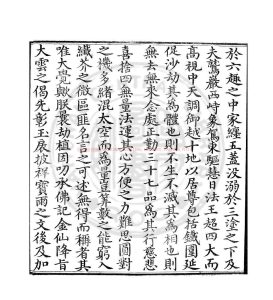 於六趣之中家纏五蓋沒溺於三塗之下及
夫鷲巖西峙象駕東驅慧日法王超四大而
高視中天調御越十地以居尊包括鐵圍延
促沙劫其為體也則不生不滅其為相也則
無去無來念處正勤三十七品為其行慈悲
喜捨四無量法運其心方便之力難思圓對
之機多緒混太空而為量豈算數之能窮入
纖芥之微區匪名言之可述無得而稱者其
唯大覺歟朕曩劫植因叨承佛記金仙降旨
大雲之偈先彰玉扆披祥寶雨之文後及加